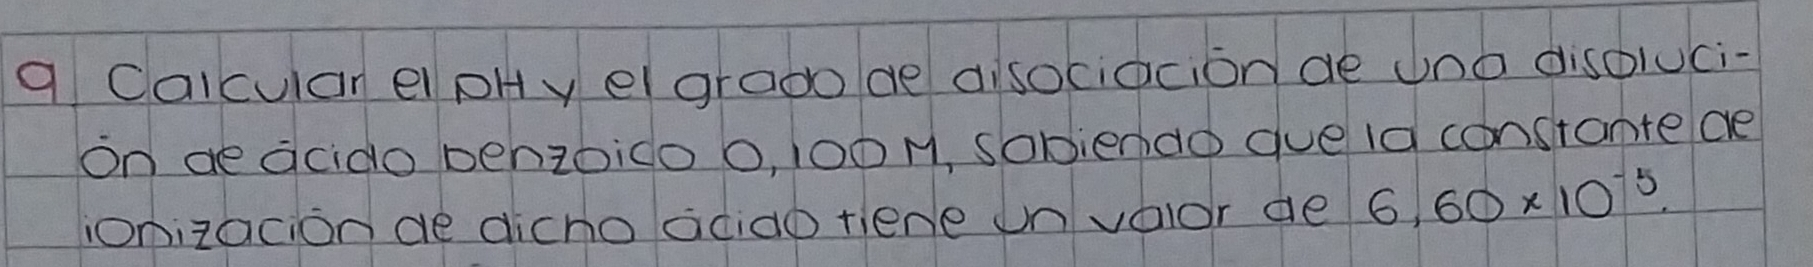 9 Calcular el pH y el grado de disociación de una disoluci-
ón de ácido benzoico 0,100 M, sabiendo que la constante de
ionización de dicho ácido tiene un valor de 6,60 x 10⁻⁵.